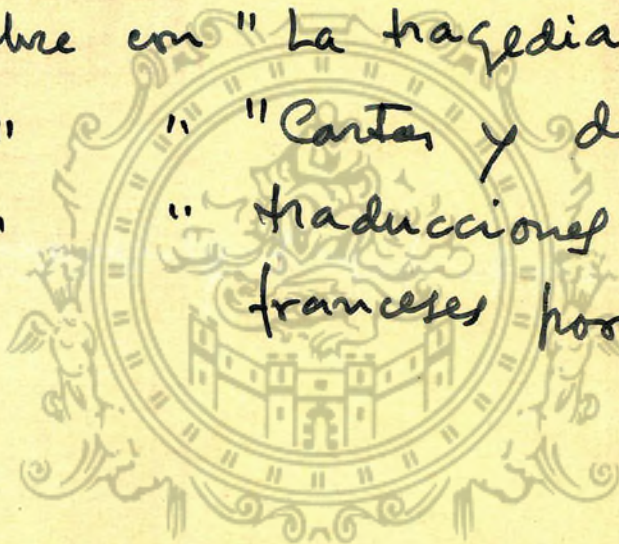 con " La tragedia
" " "Cartas y d
" " traducciones
franceses por